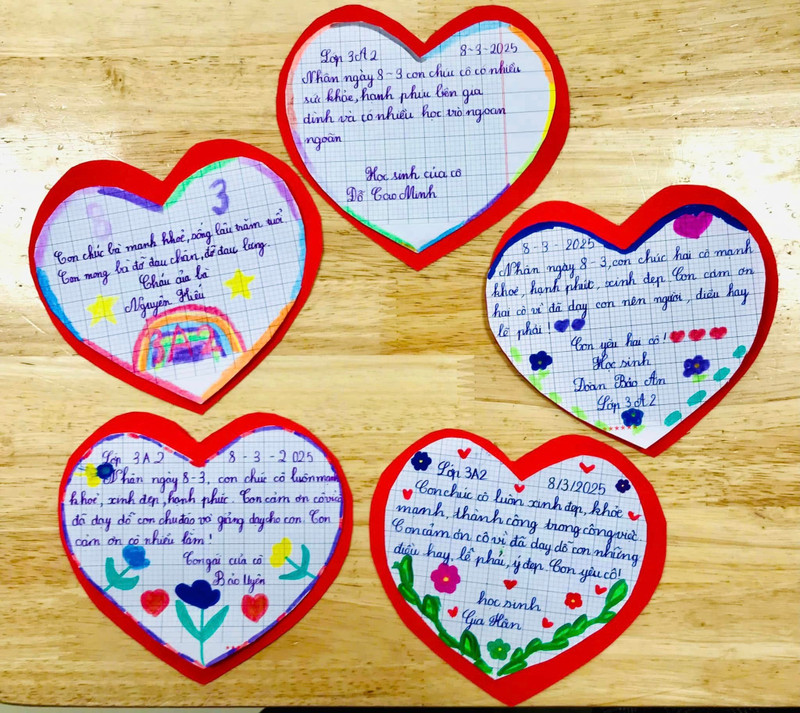 Lớp 3A2 8-3-2025
Nhân ngày 8-3 con chúc cô có nhiều
sức khỏe, hạnh phúc bên gia
đình và có nhiều học trò ngoan
ngoãn
Học sinh của cô
Đỗ Cao Minh
8 3
Con chúc bà mạnh khoẻ, sống lâu trăm tuổi.
Con mong bà đỡ đau chân, đỡ đau lưng.
Cháu của bà
Nguyên Hiếu
8-3-2025
Nhân ngày 8-3, con chúc hai cô mạnh
khoẻ, hạnh phúc, xinh đẹp. Con cảm ơn
hai cô vì đã dạy con nên người, điều hay
lẽ phải!
Con yêu hai cô!
Học sinh
Đoàn Bảo An
Lớp 3A2
Lớp 3A2 8-3-2025
Nhân ngày 8-3, con chúc cô luôn mạnh
khoẻ, xinh đẹp, hạnh phúc. Con cảm ơn cô vì cô
đã dạy dỗ con chu đáo và giảng dạy cho con. Con
cảm ơn cô nhiều lắm!
Con gái của cô
Bảo Uyên
Lớp 3A2 8/3/2025
Con chúc cô luôn xinh đẹp, khỏe
mạnh, thành công trong công việc.
Con cảm ơn cô vì đã dạy dỗ con những
điều hay, lẽ phải, ý đẹp. Con yêu cô!
học sinh
Gia Hân